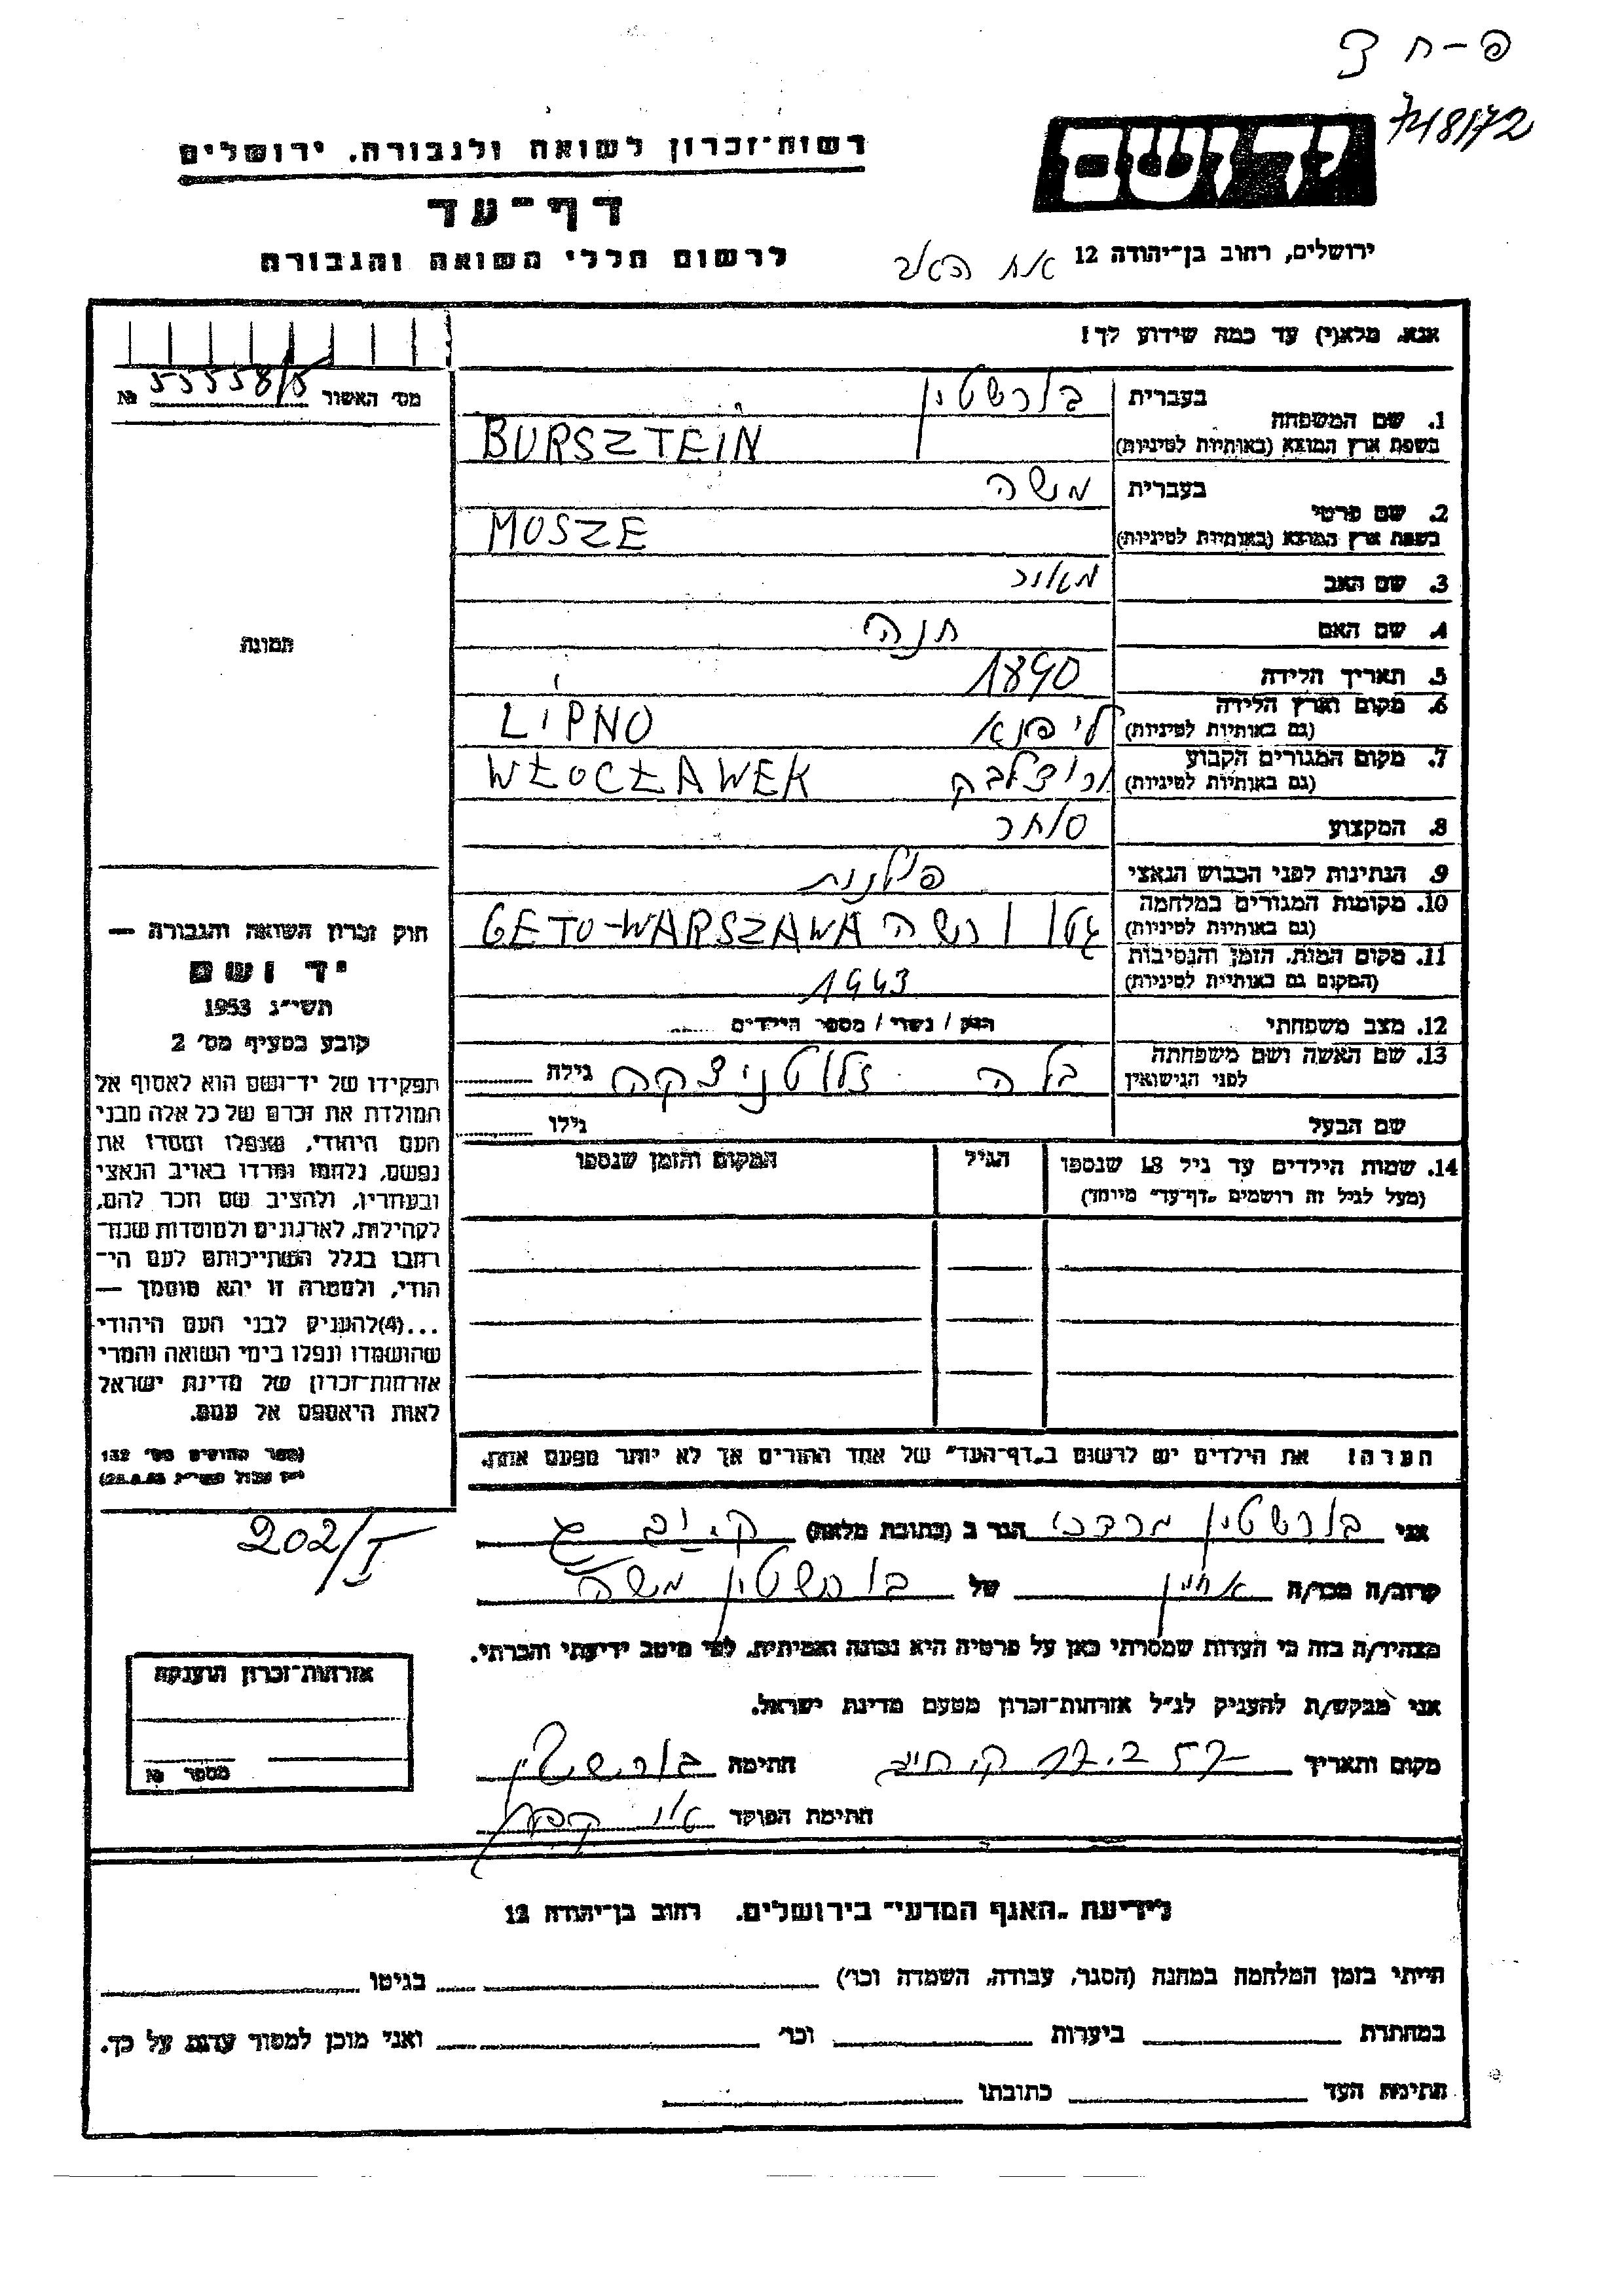 פ-ח צ
748/72
יד ושם
רשות-זכרון לשואה ולגבורה, ירושלים
דף-עד
לרשום חללי השואה והגבורה
ירושלים, רחוב בן-יהודה 12
אח האב
אנא, מלא(י) עד כמה שידוע לך!
מס' האשור № 55558/5
1. שם המשפחה
בעברית בורשטין
בשפת ארץ המוצא (באותיות לטיניות) BURSZTEIN
2. שם פרטי
בעברית משה
בשפת ארץ המוצא (באותיות לטיניות) MOSZE
3. שם האב מאיר
4. שם האם חנה
5. תאריך הלידה 1890
6. מקום וארץ הלידה
(גם באותיות לטיניות) ליפנא LIPNO
7. מקום המגורים הקבוע
(גם באותיות לטיניות) וויצלבק WŁOCŁAWEK
8. המקצוע סוחר
9. הנתינות לפני הכבוש הנאצי פולנית
10. מקומות המגורים במלחמה
(גם באותיות לטיניות) גטו ורשה GETO-WARSZAWA
11. מקום המות, הזמן והנסיבות
(המקום גם באותיות לטיניות) 1943
12. מצב משפחתי רווק / נשוי / מספר הילדים
13. שם האשה ושם משפחתה
לפני הנישואין בלה זלוטניצקה גילה
שם הבעל גילו
14. שמות הילדים עד גיל 18 שנספו
(מעל לגיל זה רושמים „דף-עד" מיוחד)
הגיל
המקום והזמן שנספו
תמונה
חוק זכרון השואה והגבורה —
יד ושם
תשי"ג 1953
קובע בסעיף מס' 2
תפקידו של יד-ושם הוא לאסוף אל
המולדת את זכרם של כל אלה מבני
העם היהודי, שנפלו ומסרו את
נפשם, נלחמו ומרדו באויב הנאצי
ובעוזריו, ולהציב שם וזכר להם,
לקהילות, לארגונים ולמוסדות שנח-
רבו בגלל השתייכותם לעם הי-
הודי, ולמטרה זו יהא מוסמך —
...(4)להעניק לבני העם היהודי
שהושמדו ונפלו בימי השואה והמרי
אזרחות-זכרון של מדינת ישראל
לאות היאספם אל עמם.
(ספר החוקים מס' 132
י"ז אלול תשי"ג 28.8.53)
הערה! את הילדים יש לרשום ב„דף-העד" של אחד ההורים אך לא יותר מפעם אחת.
202/I
אני בורשטין מרדכי הגר ב (כתובת מלאה)
קרוב/ה מכר/ה אחיין של בורשטין משה
מצהיר/ה בזה כי העדות שמסרתי כאן על פרטיה היא נכונה ואמיתית, לפי מיטב ידיעתי והכרתי.
אני מבקש/ת להעניק לנ"ל אזרחות-זכרון מטעם מדינת ישראל.
מקום ותאריך חתימה בורשטין
חתימת הפוקד
אזרחות-זכרון הוענקה
מספר №
לידיעת „האגף המדעי" בירושלים. רחוב בן-יהודה 12
הייתי בזמן המלחמה במחנה (הסגר, עבודה, השמדה וכו') בגיטו
במחתרת ביערות וכו' ואני מוכן למסור עדות על כך.
חתימת העד כתובתו